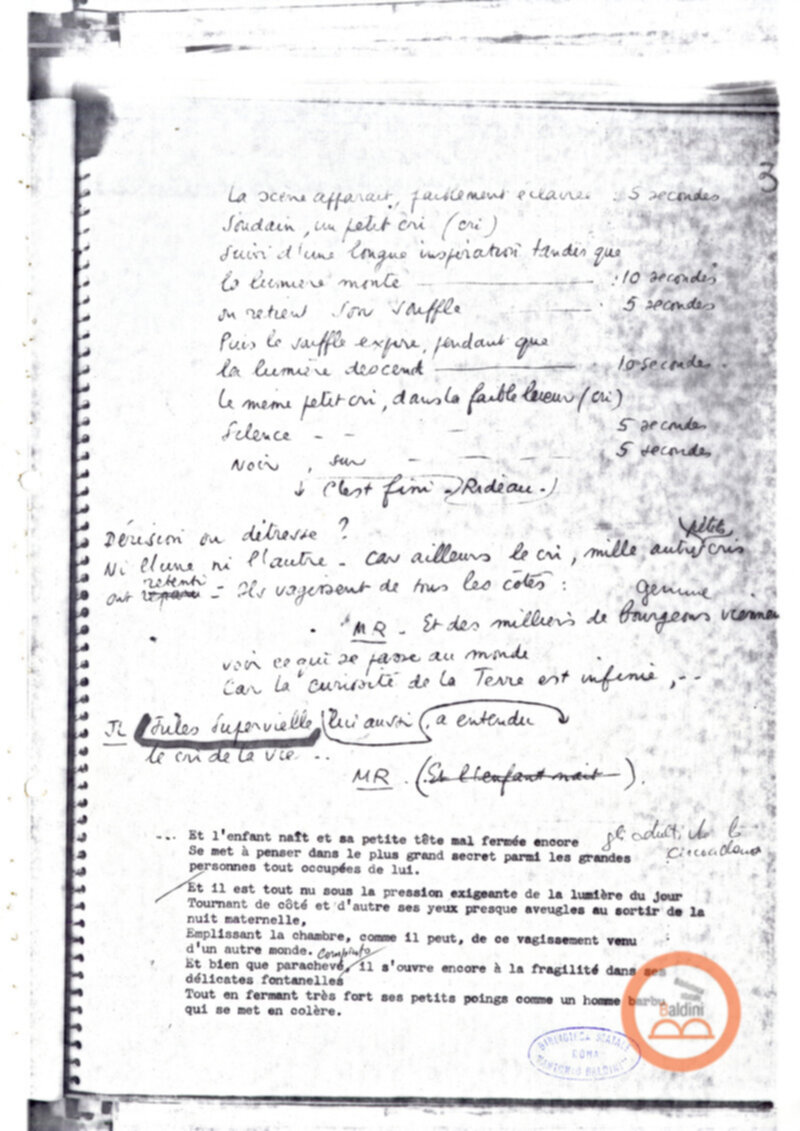 3
La scène apparait, faiblement éclairée : 5 secondes
Soudain, un petit cri (cri)
Suivi d'une longue inspiration tandis que
la lumière monte : 10 secondes
on retient son souffle 5 secondes
Puis le souffle expire, pendant que
la lumière descend 10 secondes
le même petit cri, dans la faible lueur (cri)
Silence - - - 5 secondes
Noir, sur - - 5 secondes
↓ C'est fini - Rideau.)
Dérision ou détresse ? petits
Ni l'une ni l'autre - Car ailleurs le cri, mille autres cris
retenti
ont - Ils vagissent de tous les côtés : gemme
MR - Et des milliers de bourgeons viennent
voir ce qui se passe au monde
Car la curiosité de la Terre est infinie, --
JL Jules Supervielle, lui aussi, a entendu
le cri de la vie ..
MR. (Et l'enfant nait).
... Et l'enfant naît et sa petite tête mal fermée encore
gli adulti che lo
Se met à penser dans le plus grand secret parmi les grandes
circondano
personnes tout occupées de lui.
Et il est tout nu sous la pression exigeante de la lumière du jour
Tournant de côté et d'autre ses yeux presque aveugles au sortir de la
nuit maternelle,
Emplissant la chambre, comme il peut, de ce vagissement venu
d'un autre monde. compiuto
Et bien que parachevé, il s'ouvre encore à la fragilité dans ses
délicates fontanelles
Tout en fermant très fort ses petits poings comme un homme barbu
qui se met en colère.
Baldini
BIBLIOTECA STATALE
ROMA
"ANTONIO BALDINI"